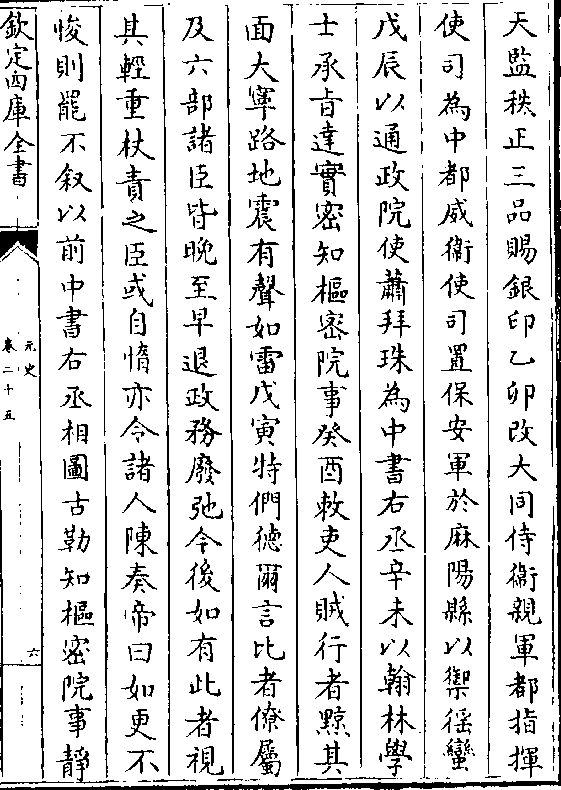 天監秩正三品賜銀印乙卯改大同侍衛親軍都指揮
使司為中都威衛使司置保安軍於麻陽縣以禦徭蠻
戊辰以通政院使蕭拜珠為中書右丞辛未以翰林學
士承旨達實密知樞密院事癸酉敕吏人贓行者黥其
面大寧路地震有聲如雷戊寅特們德爾言比者僚屬
及六部諸臣皆晚至早退政務廢弛今後如有此者視
其輕重杖責之臣或自惰亦令諸人陳奏帝曰如更不
悛則罷不敘以前中書右丞相圖古勒知樞密院事靜
欽定四庫全書
元史
卷二十五
六